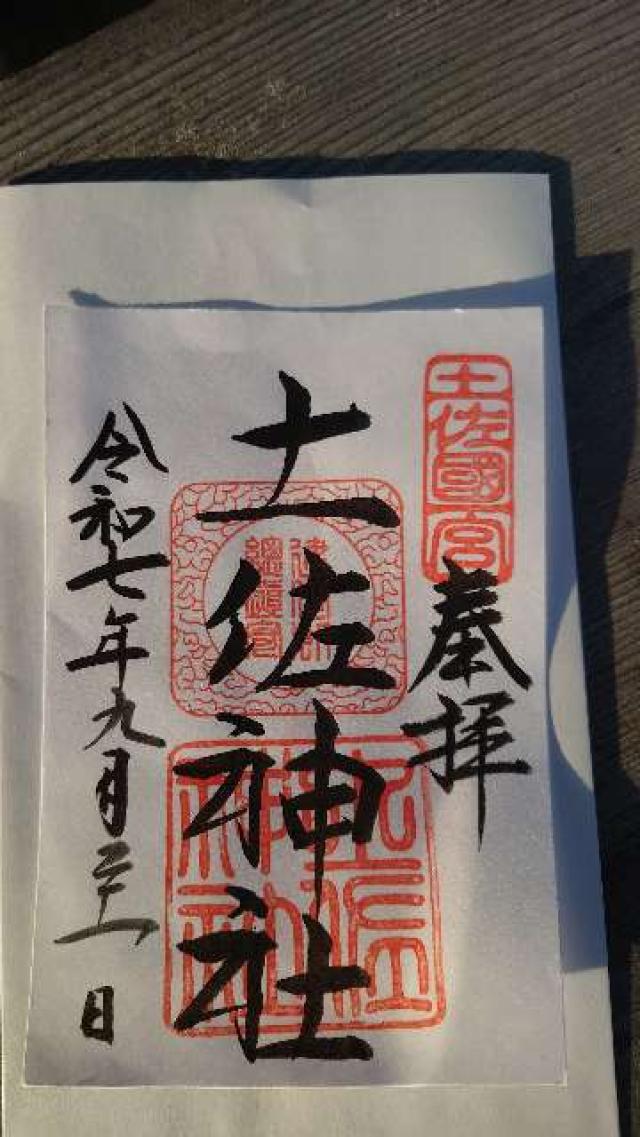 土佐國一宮
奉拝
土佐神社
令和七年九月二十一日